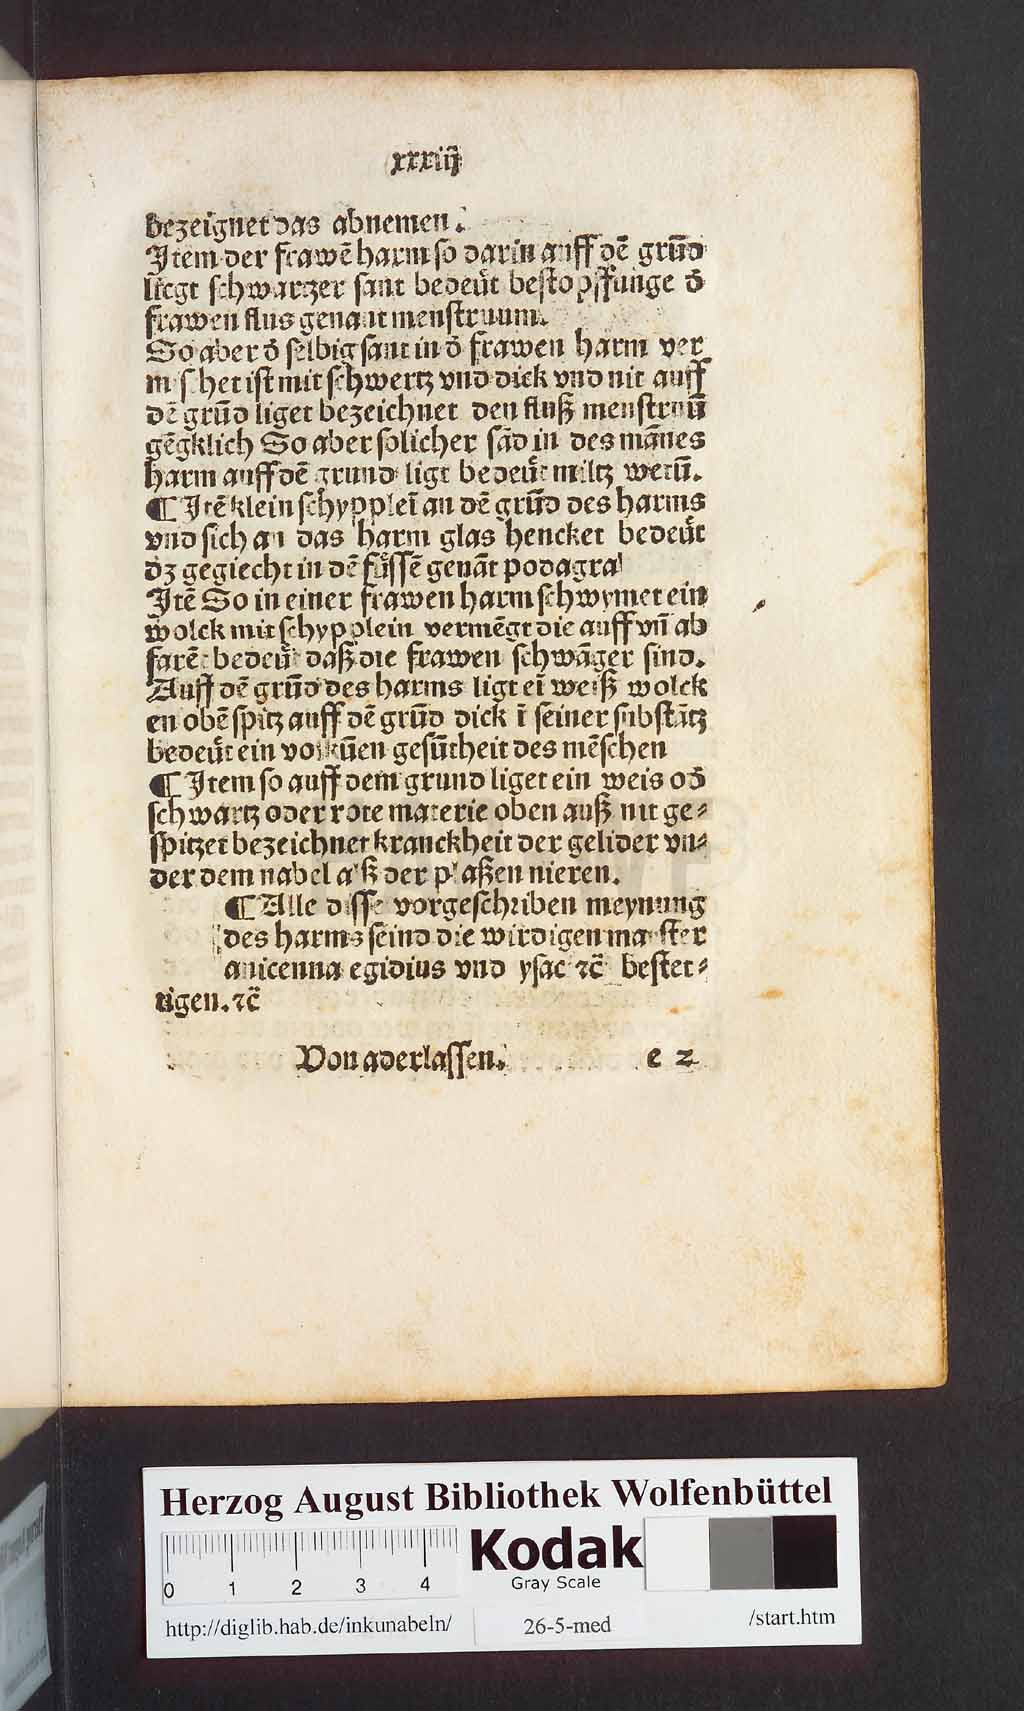 xxxiij
bezeignet das abnemen.
Item der frawē harm so darin auff dē grūd
ligt schwartzer sant bedeüt bestopffunge d̄
frawen flus genant menstruum.
So aber d̄ selbig sant in d̄ frawen harm ver
mischet ist mit schwertz vnd dick vnd nit auff
dē grūd liget bezeichnet den fluß menstruū
gēgklich So aber solicher sād in des mānes
harm auff dē grund ligt bedeüt miltz wetū.
¶ Itē klein schyppleī an dē grūd des harms
vnd sich an das harm glas hencket bedeüt
dz gegiecht in dē füssē genāt podagra
Itē So in einer frawen harm schwymet ein
wolck mit schypplein vermēgt die auff vn̄ ab
farē bedeüt daß die frawen schwāger sind.
Auff dē grūd des harms ligt eī weiß wolck
en obē spitz auff dē grūd dick ī seiner substātz
bedeüt ein volkūen gesūtheit des mēschen
¶ Item so auff dem grund liget ein weis od̄
schwartz oder rote materie oben auß nit ge⸗
spitzet bezeichnet kranckheit der gelider vn⸗
der dem nabel alß der plaßen nieren.
¶ Alle disse vorgeschriben meynung
des harms seind die wirdigen maister
auicenna egidius vnd ysac ⁊c̄ bestet⸗
tigen. ⁊c̄
Von aderlassen. e 2
Herzog August Bibliothek Wolfenbüttel
Kodak
Gray Scale
0 1 2 3 4
http://diglib.hab.de/inkunabeln/ 26-5-med /start.htm